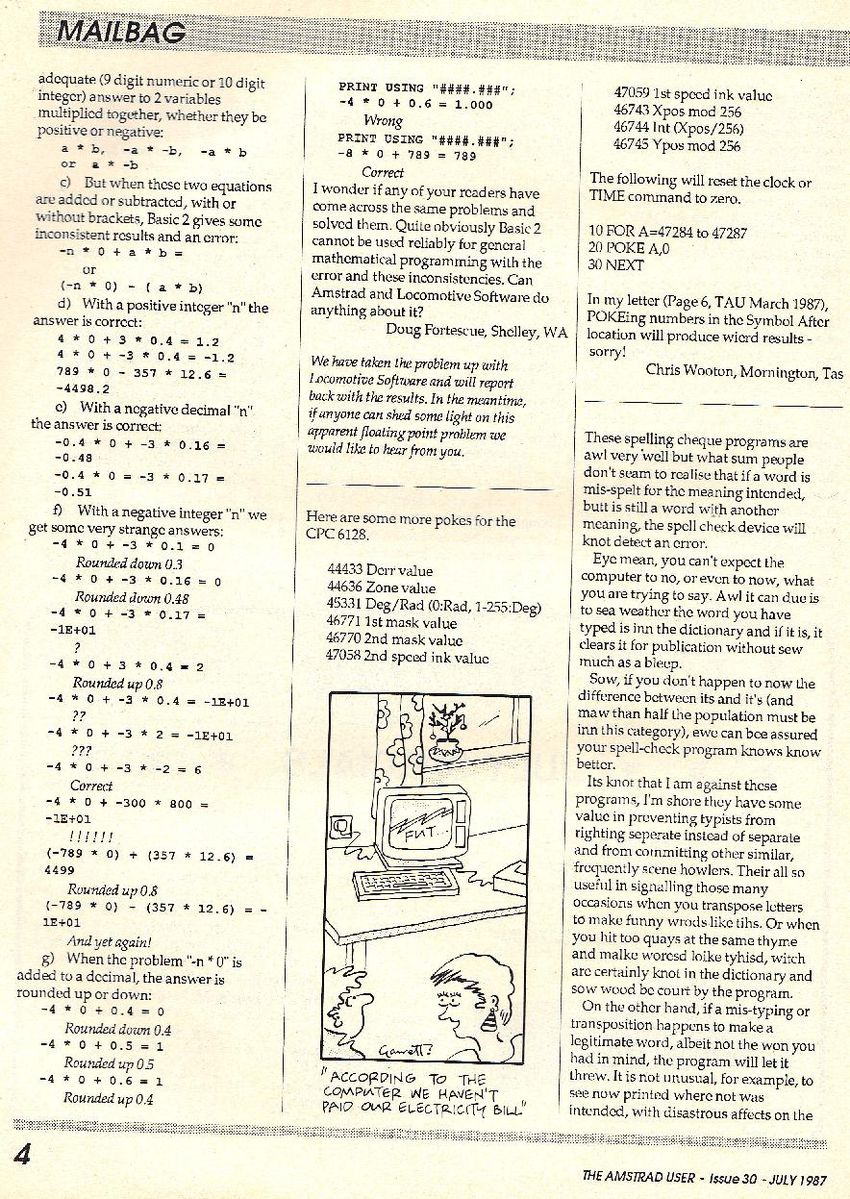 MAILBAG
adequate (9 digit numeric or 10 digit
integer) answer to 2 variables
multiplied together, whether they be
positive or negative:
a * b, -a * -b, -a * b
or a * -b
c) But when these two equations
are added or subtracted, with or
without brackets, Basic 2 gives some
inconsistent results and an error:
-n * 0 + a * b =
or
(-n * 0) - ( a * b)
d) With a positive integer "n" the
answer is correct:
4 * 0 + 3 * 0.4 = 1.2
4 * 0 + -3 * 0.4 = -1.2
789 * 0 - 357 * 12.6 =
-4498.2
e) With a negative decimal "n"
the answer is correct:
-0.4 * 0 + -3 * 0.16 =
-0.48
-0.4 * 0 = -3 * 0.17 =
-0.51
f) With a negative integer "n" we
get some very strange answers:
-4 * 0 + -3 * 0.1 = 0
Rounded down 0.3
-4 * 0 + -3 * 0.16 = 0
Rounded down 0.48
-4 * 0 + -3 * 0.17 =
-1E+01
?
-4 * 0 + 3 * 0.4 = 2
Rounded up 0.8
-4 * 0 + -3 * 0.4 = -1E+01
??
-4 * 0 + -3 * 2 = -1E+01
???
-4 * 0 + -3 * -2 = 6
Correct
-4 * 0 + -300 * 800 =
-1E+01
!!!!!!
(-789 * 0) + (357 * 12.6) =
4499
Rounded up 0.8
(-789 * 0) - (357 * 12.6) = -
1E+01
And yet again!
g) When the problem "-n * 0" is
added to a decimal, the answer is
rounded up or down:
-4 * 0 + 0.4 = 0
Rounded down 0.4
-4 * 0 + 0.5 = 1
Rounded up 0.5
-4 * 0 + 0.6 = 1
Rounded up 0.4
PRINT USING "####.###";
-4 * 0 + 0.6 = 1.000
Wrong
PRINT USING "####.###";
-8 * 0 + 789 = 789
Correct
I wonder if any of your readers have
come across the same problems and
solved them. Quite obviously Basic 2
cannot be used reliably for general
mathematical programming with the
error and these inconsistencies. Can
Amstrad and Locomotive Software do
anything about it?
Doug Fortescue, Shelley, WA
We have taken the problem up with
Locomotive Software and will report
back with the results. In the meantime,
if anyone can shed some light on this
apparent floating point problem we
would like to hear from you.
Here are some more pokes for the
CPC 6128.
44433 Derr value
44636 Zone value
45331 Deg/Rad (0:Rad, 1-255:Deg)
46771 1st mask value
46770 2nd mask value
47058 2nd speed ink value
FUT...
Garrett?
"ACCORDING TO THE
COMPUTER WE HAVEN'T
PAID OUR ELECTRICITY BILL"
47059 1st speed ink value
46743 Xpos mod 256
46744 Int (Xpos/256)
46745 Ypos mod 256
The following will reset the clock or
TIME command to zero.
10 FOR A=47284 to 47287
20 POKE A,0
30 NEXT
In my letter (Page 6, TAU March 1987),
POKEing numbers in the Symbol After
location will produce wierd results -
sorry!
Chris Wooton, Mornington, Tas
These spelling cheque programs are
awl very well but what sum people
don't seam to realise that if a word is
mis-spelt for the meaning intended,
butt is still a word with another
meaning, the spell check device will
knot detect an error.
Eye mean, you can't expect the
computer to no, or even to now, what
you are trying to say. Awl it can due is
to sea weather the word you have
typed is inn the dictionary and if it is, it
clears it for publication without sew
much as a bleep.
Sow, if you don't happen to now the
difference between its and it's (and
maw than half the population must be
inn this category), ewe can bee assured
your spell-check program knows know
better.
Its knot that I am against these
programs, I'm shore they have some
value in preventing typists from
righting seperate instead of separate
and from committing other similar,
frequently scene howlers. Their all so
useful in signalling those many
occasions when you transpose letters
to make funny wrods like tihs. Or when
you hit too quays at the same thyme
and malke woresd loike tyhisd, witch
are certainly knot in the dictionary and
sow wood be court by the program.
On the other hand, if a mis-typing or
transposition happens to make a
legitimate word, albeit not the won you
had in mind, the program will let it
threw. It is not unusual, for example, to
see now printed where not was
intended, with disastrous affects on the
4
THE AMSTRAD USER - Issue 30 - JULY 1987